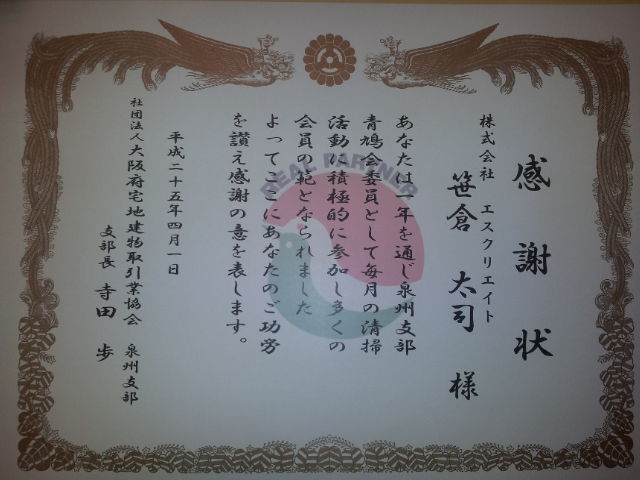 感謝状
株式会社 エスクリエイト
笹倉 太司 様
あなたは一年を通じ泉州支部
青鳩会委員として毎月の清掃
活動に積極的に参加し多くの
会員の範となられました
よってここにあなたのご功労
を讃え感謝の意を表します。
平成二十五年四月一日
社団法人大阪府宅地建物取引業協会 泉州支部
支部長 寺田 歩
REAL PARTNER